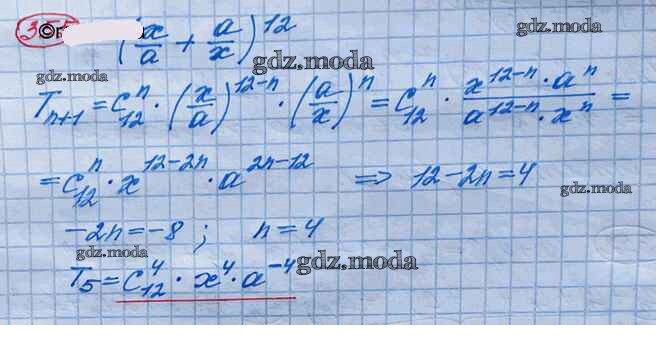 35 ©г (x/a + a/x)^12
gdz.moda gdz.moda gdz.moda
T_{n+1} = C_{12}^n · (x/a)^{12-n} · (a/x)^n = C_{12}^n · (x^{12-n} · a^n)/(a^{12-n} · x^n) =
gdz.moda gdz.moda
= C_{12}^n · x^{12-2n} · a^{2n-12} => 12-2n=4
gdz.moda
-2n=-8 ; n=4
gdz.moda
T_5 = C_{12}^4 · x^4 · a^{-4}
gdz.moda